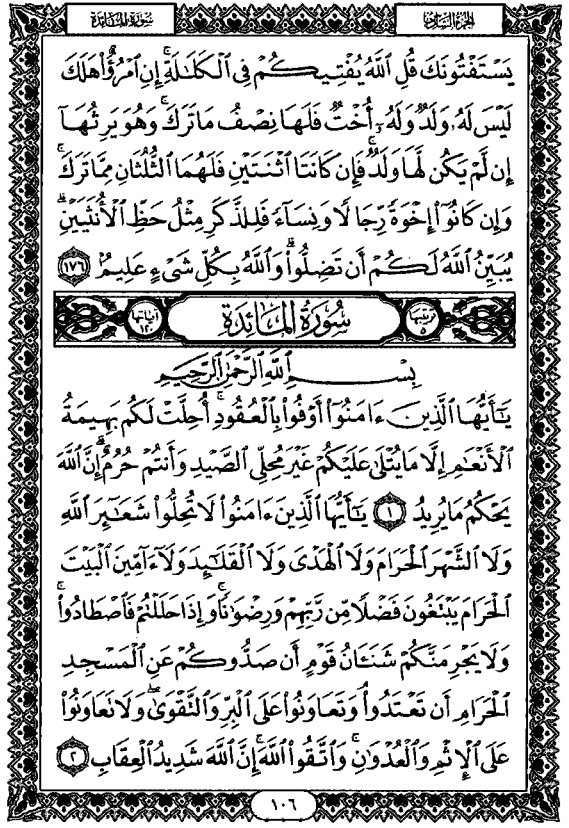 سُورَةُ المَائدَةِ
الجُزءُ السَّادِسُ
يَسْتَفْتُونَكَ قُلِ ٱللَّهُ يُفْتِيكُمْ فِى ٱلْكَلَـٰلَةِ ۚ إِنِ ٱمْرُؤٌا۟ هَلَكَ
لَيْسَ لَهُۥ وَلَدٌ وَلَهُۥٓ أُخْتٌ فَلَهَا نِصْفُ مَا تَرَكَ ۚ وَهُوَ يَرِثُهَآ
إِن لَّمْ يَكُن لَّهَا وَلَدٌ ۚ فَإِن كَانَتَا ٱثْنَتَيْنِ فَلَهُمَا ٱلثُّلُثَانِ مِمَّا تَرَكَ ۚ
وَإِن كَانُوٓا۟ إِخْوَةً رِّجَالًا وَنِسَآءً فَلِلذَّكَرِ مِثْلُ حَظِّ ٱلْأُنثَيَيْنِ ۗ
يُبَيِّنُ ٱللَّهُ لَكُمْ أَن تَضِلُّوا۟ ۗ وَٱللَّهُ بِكُلِّ شَىْءٍ عَلِيمٌۢ ١٧٦
ترتيبها ٥ سُورَةُ المَائدَةِ آياتها ١٢٠
بِسْمِ ٱللَّهِ ٱلرَّحْمَـٰنِ ٱلرَّحِيمِ
يَـٰٓأَيُّهَا ٱلَّذِينَ ءَامَنُوٓا۟ أَوْفُوا۟ بِٱلْعُقُودِ ۚ أُحِلَّتْ لَكُم بَهِيمَةُ
ٱلْأَنْعَـٰمِ إِلَّا مَا يُتْلَىٰ عَلَيْكُمْ غَيْرَ مُحِلِّى ٱلصَّيْدِ وَأَنتُمْ حُرُمٌ ۗ إِنَّ ٱللَّهَ
يَحْكُمُ مَا يُرِيدُ ١ يَـٰٓأَيُّهَا ٱلَّذِينَ ءَامَنُوا۟ لَا تُحِلُّوا۟ شَعَـٰٓئِرَ ٱللَّهِ
وَلَا ٱلشَّهْرَ ٱلْحَرَامَ وَلَا ٱلْهَدْىَ وَلَا ٱلْقَلَـٰٓئِدَ وَلَآ ءَآمِّينَ ٱلْبَيْتَ
ٱلْحَرَامَ يَبْتَغُونَ فَضْلًا مِّن رَّبِّهِمْ وَرِضْوَٰنًا ۚ وَإِذَا حَلَلْتُمْ فَٱصْطَادُوا۟ ۚ
وَلَا يَجْرِمَنَّكُمْ شَنَـَٔانُ قَوْمٍ أَن صَدُّوكُمْ عَنِ ٱلْمَسْجِدِ
ٱلْحَرَامِ أَن تَعْتَدُوا۟ ۘ وَتَعَاوَنُوا۟ عَلَى ٱلْبِرِّ وَٱلتَّقْوَىٰ ۖ وَلَا تَعَاوَنُوا۟
عَلَى ٱلْإِثْمِ وَٱلْعُدْوَٰنِ ۚ وَٱتَّقُوا۟ ٱللَّهَ ۖ إِنَّ ٱللَّهَ شَدِيدُ ٱلْعِقَابِ ٢
١٠٦